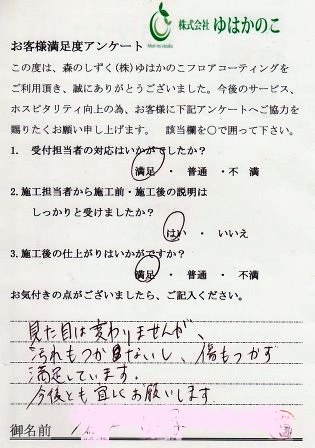 株式会社 ゆはかのこ
Mori no shizuku
お客様満足度アンケート
この度は、森のしずく(株)ゆはかのこフロアコーティングを
ご利用頂き、誠にありがとうございました。今後のサービス、
ホスピタリティ向上の為、お客様に下記アンケートへご協力を
賜りたくお願い申し上げます。 該当欄を〇で囲って下さい。
1. 受付担当者の対応はいかがでしたか?
満足 ・ 普通 ・ 不満
2.施工担当者から施工前・施工後の説明は
しっかりと受けましたか?
はい ・ いいえ
3.施工後の仕上がりはいかがですか?
満足 ・ 普通 ・ 不満
お気付きの点がございましたら、ご記入ください。
見た目は変わりませんが、
汚れもつかないし、傷もつかず
満足しています。
今後とも宜しくお願いします
御名前